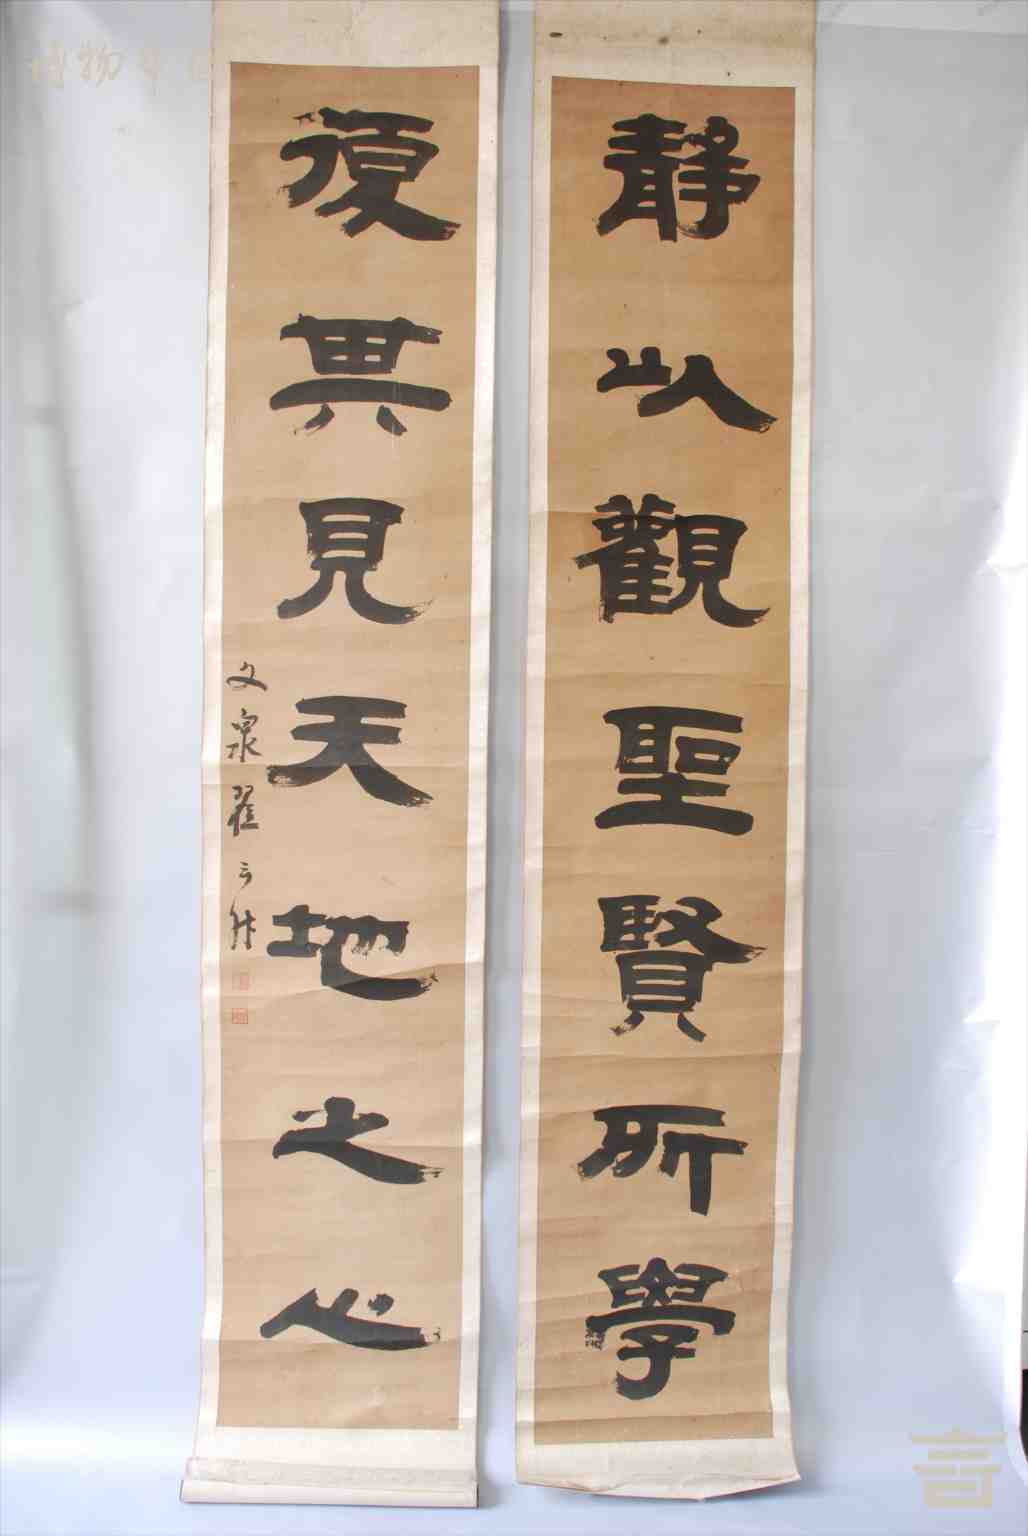 靜以觀聖賢所學
復其見天地之心
文泉翟云升
博物中国